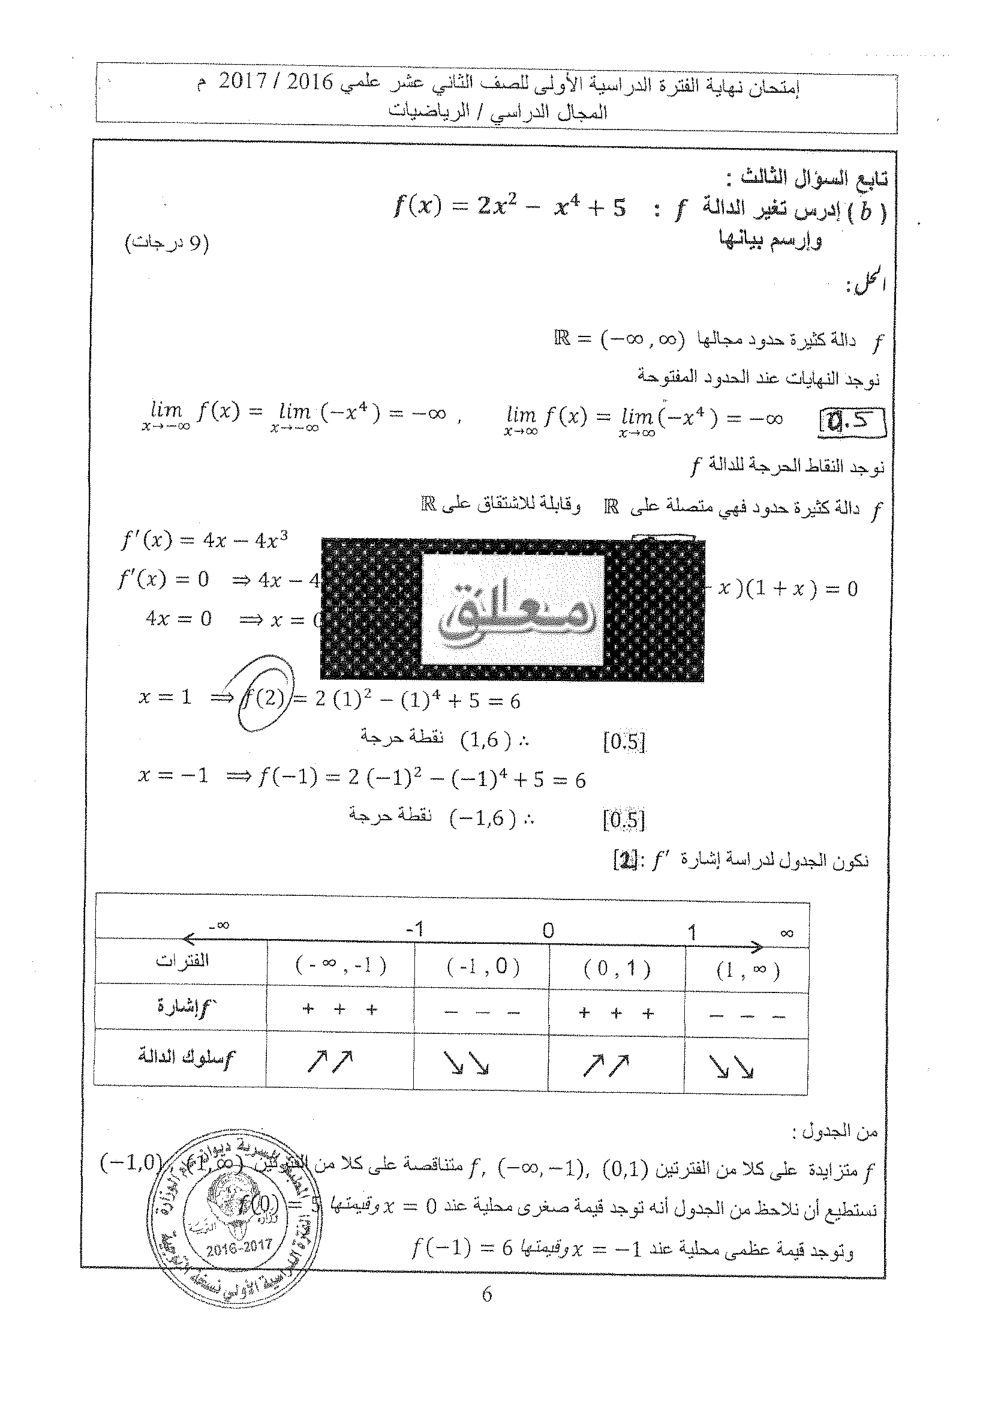 إمتحان نهاية الفترة الدراسية الأولى للصف الثاني عشر علمي 2016 / 2017 م
المجال الدراسي / الرياضيات
تابع السؤال الثالث :
( b ) إدرس تغير الدالة f : f(x) = 2x² − x⁴ + 5
وإرسم بيانها
(9 درجات)
الحل :
f دالة كثيرة حدود مجالها ℝ = (−∞ , ∞)
نوجد النهايات عند الحدود المفتوحة
lim x→−∞ f(x) = lim x→−∞ (−x⁴ ) = −∞ , lim x→∞ f(x) = lim x→∞ (−x⁴ ) = −∞ 0.5
نوجد النقاط الحرجة للدالة f
f دالة كثيرة حدود فهي متصلة على ℝ وقابلة للاشتقاق على ℝ
f′(x) = 4x − 4x³
f′(x) = 0 ⇒ 4x − 4 x )(1 + x ) = 0
4x = 0 ⇒ x = 0
معلق
x = 1 ⇒ f(2) = 2 (1)² − (1)⁴ + 5 = 6
∴ (1,6) نقطة حرجة [0.5]
x = −1 ⇒ f(−1) = 2 (−1)² − (−1)⁴ + 5 = 6
∴ (−1,6) نقطة حرجة [0.5]
نكون الجدول لدراسة إشارة f′ : [1]
-∞ -1 0 1 ∞
الفترات ( - ∞ , -1 ) ( -1 , 0 ) ( 0 , 1 ) (1 , ∞ )
إشارة f` + + + − − − + + + − − −
سلوك الدالة f ↗↗ ↘↘ ↗↗ ↘↘
من الجدول :
f متزايدة على كلا من الفترتين (0,1) ,(−∞, −1) ,f متناقصة على كلا من الفترتين (1, ∞) , (−1,0)
نستطيع أن نلاحظ من الجدول أنه توجد قيمة صغرى محلية عند x = 0 وقيمتها f(0) = 5
وتوجد قيمة عظمى محلية عند x = −1 وقيمتها f(−1) = 6
2016-2017
6